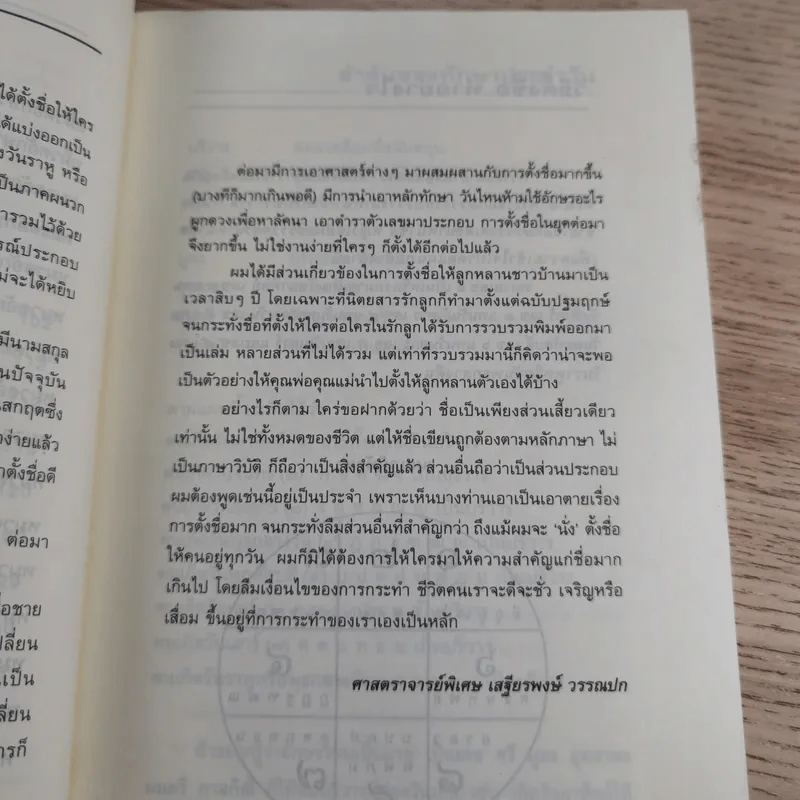 ได้ตั้งชื่อให้ใคร
ได้แบ่งออกเป็น
วันราหู หรือ
เป็นภาคผนวก
รวมไว้ด้วย
ประกอบ
จะได้หยิบ
มีนามสกุล
ปัจจุบัน
สกฤตซึ่ง
ง่ายแล้ว
ตั้งชื่อดี
ต่อมา
ชื่อชาย
เปลี่ยน
เป็น
ก็
ต่อมามีการเอาศาสตร์ต่างๆ มาผสมผสานกับการตั้งชื่อมากขึ้น
(บางทีก็มากเกินพอดี) มีการนำเอาหลักทักษา วันไหนห้ามใช้อักษรอะไร
ผูกดวงเพื่อหาลัคนา เอาตำราตัวเลขมาประกอบ การตั้งชื่อในยุคต่อมา
จึงยากขึ้น ไม่ใช่งานง่ายที่ใครๆ ก็ตั้งได้อีกต่อไปแล้ว
ผมได้มีส่วนเกี่ยวข้องในการตั้งชื่อให้ลูกหลานชาวบ้านมาเป็น
เวลาสิบๆ ปี โดยเฉพาะที่นิตยสารรักลูกก็ทำมาตั้งแต่ฉบับปฐมฤกษ์
จนกระทั่งชื่อที่ตั้งให้ใครต่อใครในรักลูกได้รับการรวบรวมพิมพ์ออกมา
เป็นเล่ม หลายส่วนที่ไม่ได้รวม แต่เท่าที่รวบรวมมานี้ก็คิดว่าน่าจะพอ
เป็นตัวอย่างให้คุณพ่อคุณแม่นำไปตั้งให้ลูกหลานตัวเองได้บ้าง
อย่างไรก็ตาม ใคร่ขอฝากด้วยว่า ชื่อเป็นเพียงส่วนเสี้ยวเดียว
เท่านั้น ไม่ใช่ทั้งหมดของชีวิต แต่ให้ชื่อเขียนถูกต้องตามหลักภาษา ไม่
เป็นภาษาวิบัติ ก็ถือว่าเป็นสิ่งสำคัญแล้ว ส่วนอื่นถือว่าเป็นส่วนประกอบ
ผมต้องพูดเช่นนี้อยู่เป็นประจำ เพราะเห็นบางท่านเอาเป็นเอาตายเรื่อง
การตั้งชื่อมาก จนกระทั่งลืมส่วนอื่นที่สำคัญกว่า ถึงแม้ผมจะ 'นั่ง' ตั้งชื่อ
ให้คนอยู่ทุกวัน ผมก็มิได้ต้องการให้ใครมาให้ความสำคัญแก่ชื่อมาก
เกินไป โดยลืมเงื่อนไขของการกระทำ ชีวิตคนเราจะดีจะชั่ว เจริญหรือ
เสื่อม ขึ้นอยู่ที่การกระทำของเราเองเป็นหลัก
ศาสตราจารย์พิเศษ เสฐียรพงษ์ วรรณปก